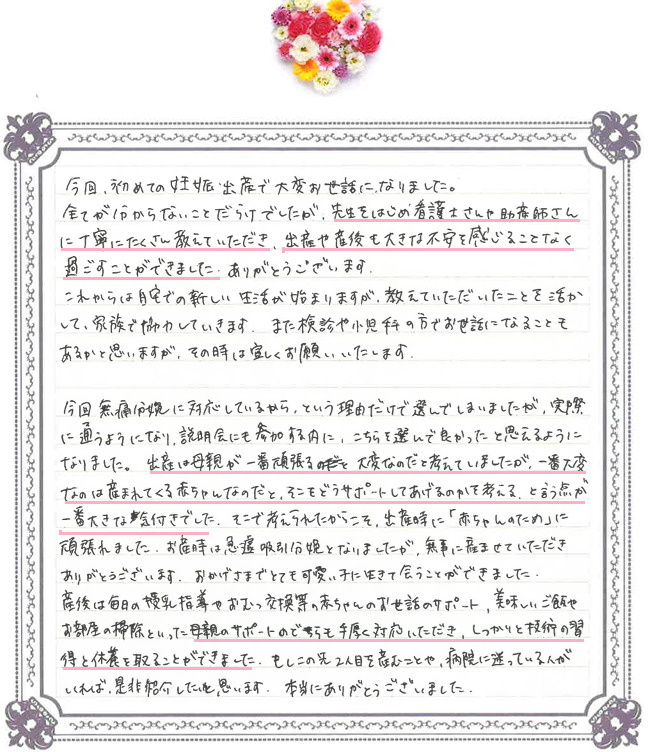 今回、初めての妊娠・出産で大変お世話になりました。
全てが分からないことだらけでしたが、先生をはじめ看護士さんや助産師さん
に丁寧にたくさん教えていただき、出産や産後も大きな不安を感じることなく
過ごすことができました。ありがとうございます。
これからは自宅での新しい生活が始まりますが、教えていただいたことを活か
して、家族で協力していきます。また検診や小児科の方でお世話になることも
あるかと思いますが、その時は宜しくお願いいたします。
今回無痛分娩に対応しているから、という理由だけで選んでしまいましたが、実際
に通うようになり、説明会にも参加する内に、こちらを選んで良かったと思えるように
なりました。出産は母親が一番頑張る大変なのだと考えていましたが、一番大変
なのは産まれてくる赤ちゃんなのだと、そこをどうサポートしてあげるのかを考える、と言う点が
一番大きな気付きでした。そこで考えられたからこそ、出産時に「赤ちゃんのため」に
頑張れました。お産時は急遽吸引分娩となりましたが、無事に産ませていただき
ありがとうございます。おかげさまでとても可愛い子に生きて会うことができました。
産後は毎日の授乳指導やおむつ交換等の赤ちゃんのお世話のサポート、美味しいご飯や
お部屋の掃除といった母親のサポートのどちらも手厚く対応いただき、しっかりと技術の習
得と休養を取ることができました。もしこの先2人目を産むことや、病院に迷っている人が
いれば、是非紹介したいと思います。本当にありがとうございました。